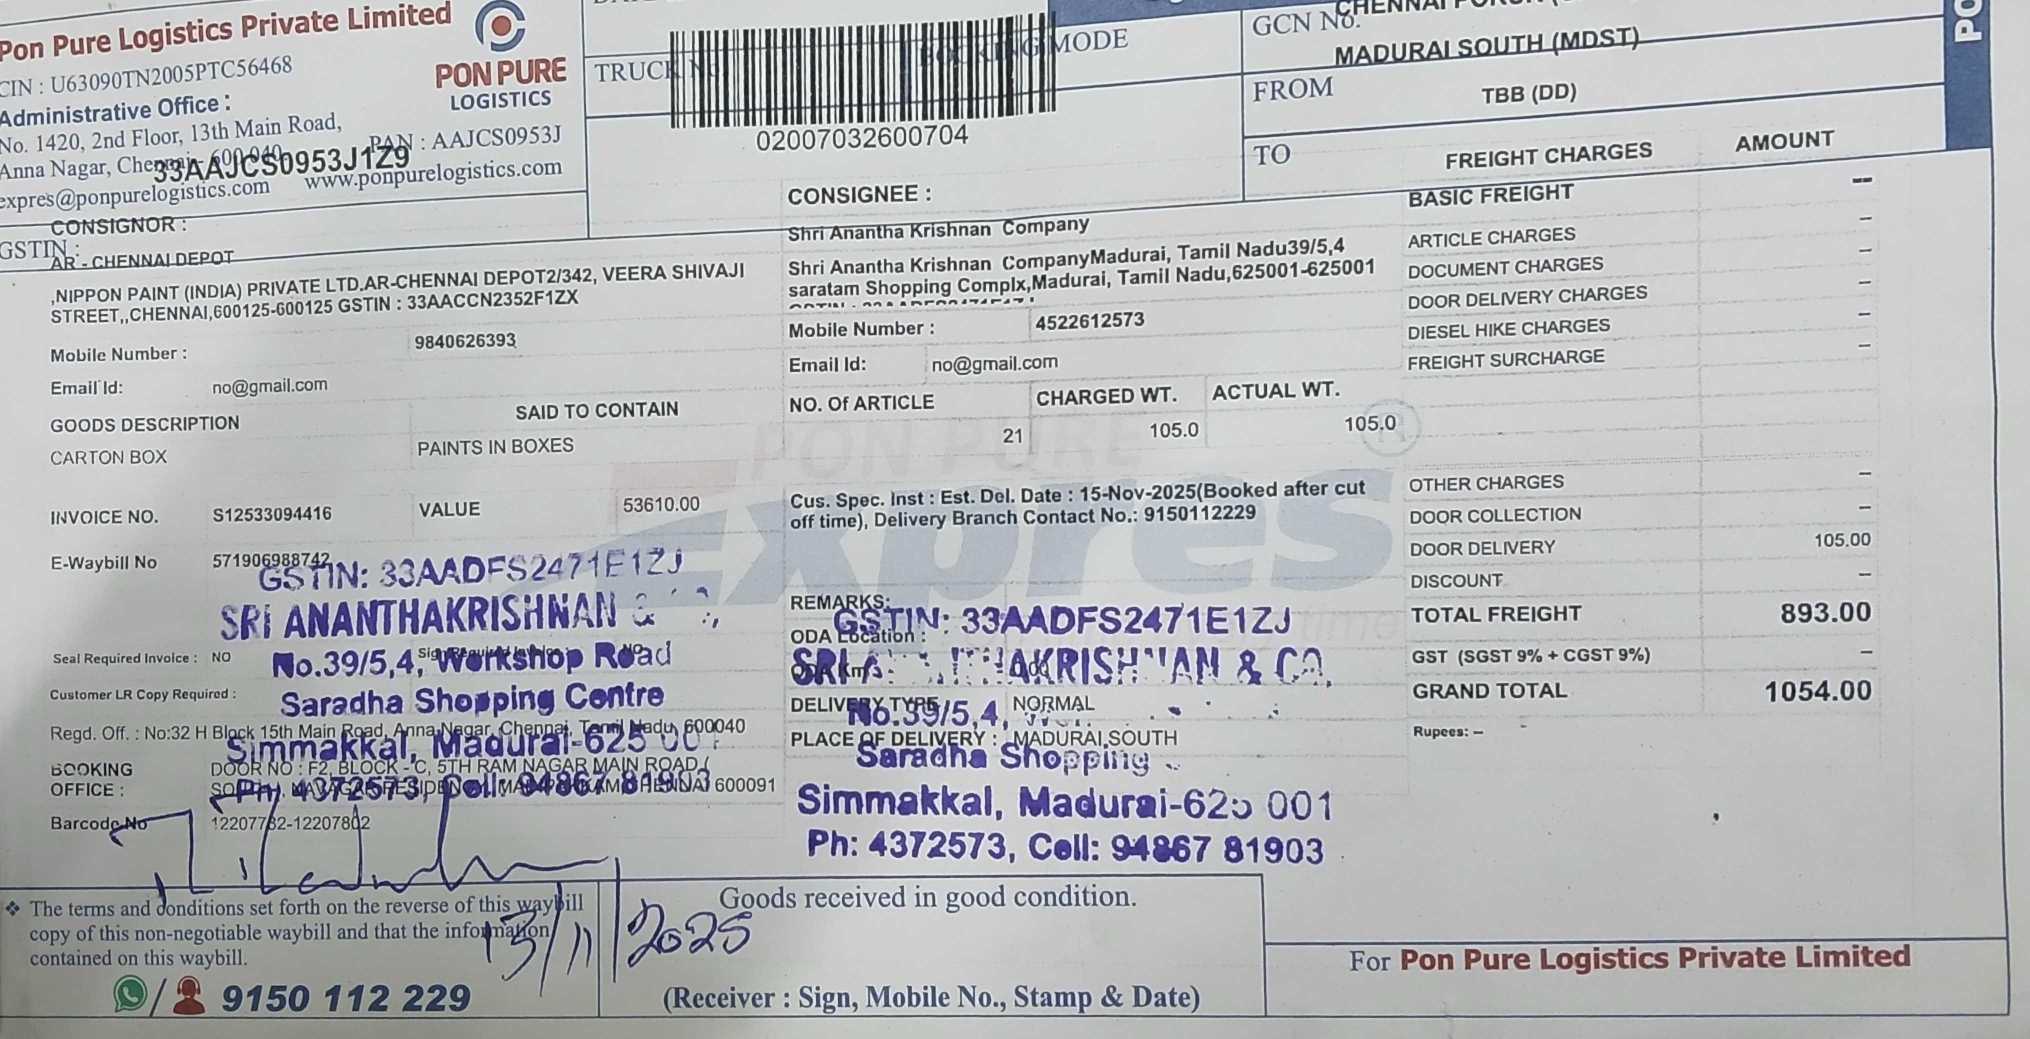 Pon Pure Logistics Private Limited
CIN : U63090TN2005PTC56468
Administrative Office :
No. 1420, 2nd Floor, 13th Main Road,
Anna Nagar, Chennai - 600 040
PAN : AAJCS0953J
33AAJCS0953J1Z9
expres@ponpurelogistics.com www.ponpurelogistics.com
GSTIN :
PON PURE
LOGISTICS
TRUCK
BOOKING MODE
02007032600704
GCN No.
MADURAI SOUTH (MDST)
FROM
TBB (DD)
TO
CONSIGNOR :
AR - CHENNAI DEPOT
,NIPPON PAINT (INDIA) PRIVATE LTD.AR-CHENNAI DEPOT2/342, VEERA SHIVAJI
STREET,,CHENNAI,600125-600125 GSTIN : 33AACCN2352F1ZX
Mobile Number : 9840626393
Email Id: no@gmail.com
CONSIGNEE :
Shri Anantha Krishnan Company
Shri Anantha Krishnan CompanyMadurai, Tamil Nadu39/5,4
saratam Shopping Complx,Madurai, Tamil Nadu,625001-625001
Mobile Number : 4522612573
Email Id: no@gmail.com
GOODS DESCRIPTION SAID TO CONTAIN
CARTON BOX PAINTS IN BOXES
NO. Of ARTICLE CHARGED WT. ACTUAL WT.
21 105.0 105.0
INVOICE NO. S12533094416 VALUE 53610.00
Cus. Spec. Inst : Est. Del. Date : 15-Nov-2025(Booked after cut
off time), Delivery Branch Contact No.: 9150112229
PON PURE
Expres
time
E-Waybill No 571906988742
GSTIN: 33AADFS2471E1ZJ
SRI ANANTHAKRISHNAN &
No.39/5,4, Workshop Road
Saradha Shopping Centre
Simmakkal, Madurai-625 001
Ph: 4372573, Cell: 94867 81903
Seal Required Invoice : NO
Customer LR Copy Required :
Regd. Off. : No:32 H Block 15th Main Road, Anna Nagar, Chennai, Tamil Nadu, 600040
BOOKING
OFFICE :
DOOR NO : F2, BLOCK - C, 5TH RAM NAGAR MAIN ROAD (
600091
Barcode No 12207782-12207802
REMARKS:
ODA Location :
DELIVERY TYPE NORMAL
PLACE OF DELIVERY : MADURAI SOUTH
GSTIN: 33AADFS2471E1ZJ
SRI ANANTHAKRISHNAN & CO.
No.39/5,4,
Saradha Shopping
Simmakkal, Madurai-625 001
Ph: 4372573, Cell: 94867 81903
FREIGHT CHARGES AMOUNT
BASIC FREIGHT --
ARTICLE CHARGES –
DOCUMENT CHARGES –
DOOR DELIVERY CHARGES –
DIESEL HIKE CHARGES –
FREIGHT SURCHARGE –
OTHER CHARGES –
DOOR COLLECTION –
DOOR DELIVERY 105.00
DISCOUNT –
TOTAL FREIGHT 893.00
GST (SGST 9% + CGST 9%) –
GRAND TOTAL 1054.00
Rupees: –
❖ The terms and conditions set forth on the reverse of this waybill
copy of this non-negotiable waybill and that the information
contained on this waybill.
9150 112 229
13/11/2025
Goods received in good condition.
(Receiver : Sign, Mobile No., Stamp & Date)
For Pon Pure Logistics Private Limited